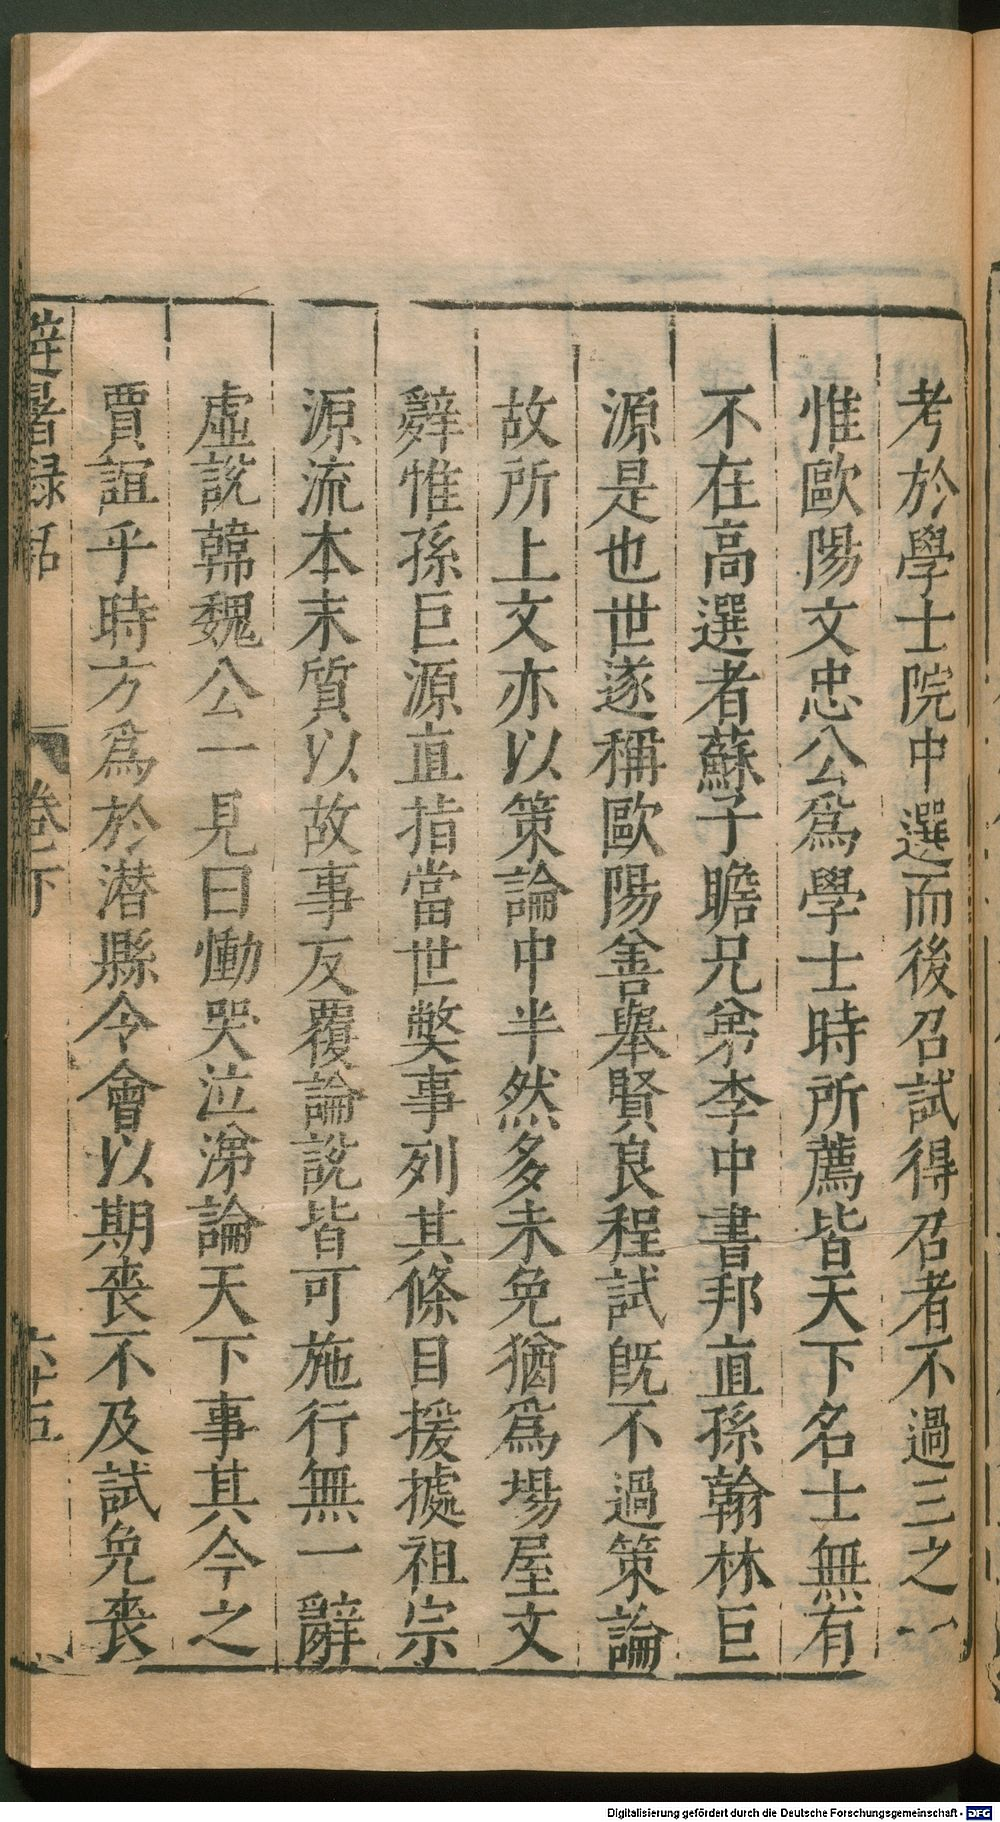 考於學士院中選而後召試得召者不過三之一
惟歐陽文忠公爲學士時所薦皆天下名士無有
不在高選者蘇子瞻兄弟李中書邦直孫翰林巨
源是也世遂稱歐陽善舉賢良程試旣不過策論
故所上文亦以策論中半然多未免猶爲場屋文
辭惟孫巨源直指當世獘事列其條目援據祖宗
源流本末質以故事反覆論說皆可施行無一辭
虛說韓魏公一見曰慟哭泣涕論天下事其今之
賈誼乎時方爲於潛縣令會以期喪不及試免喪
避暑録話 卷下 六十五
Digitalisierung gefördert durch die Deutsche Forschungsgemeinschaft - DFG